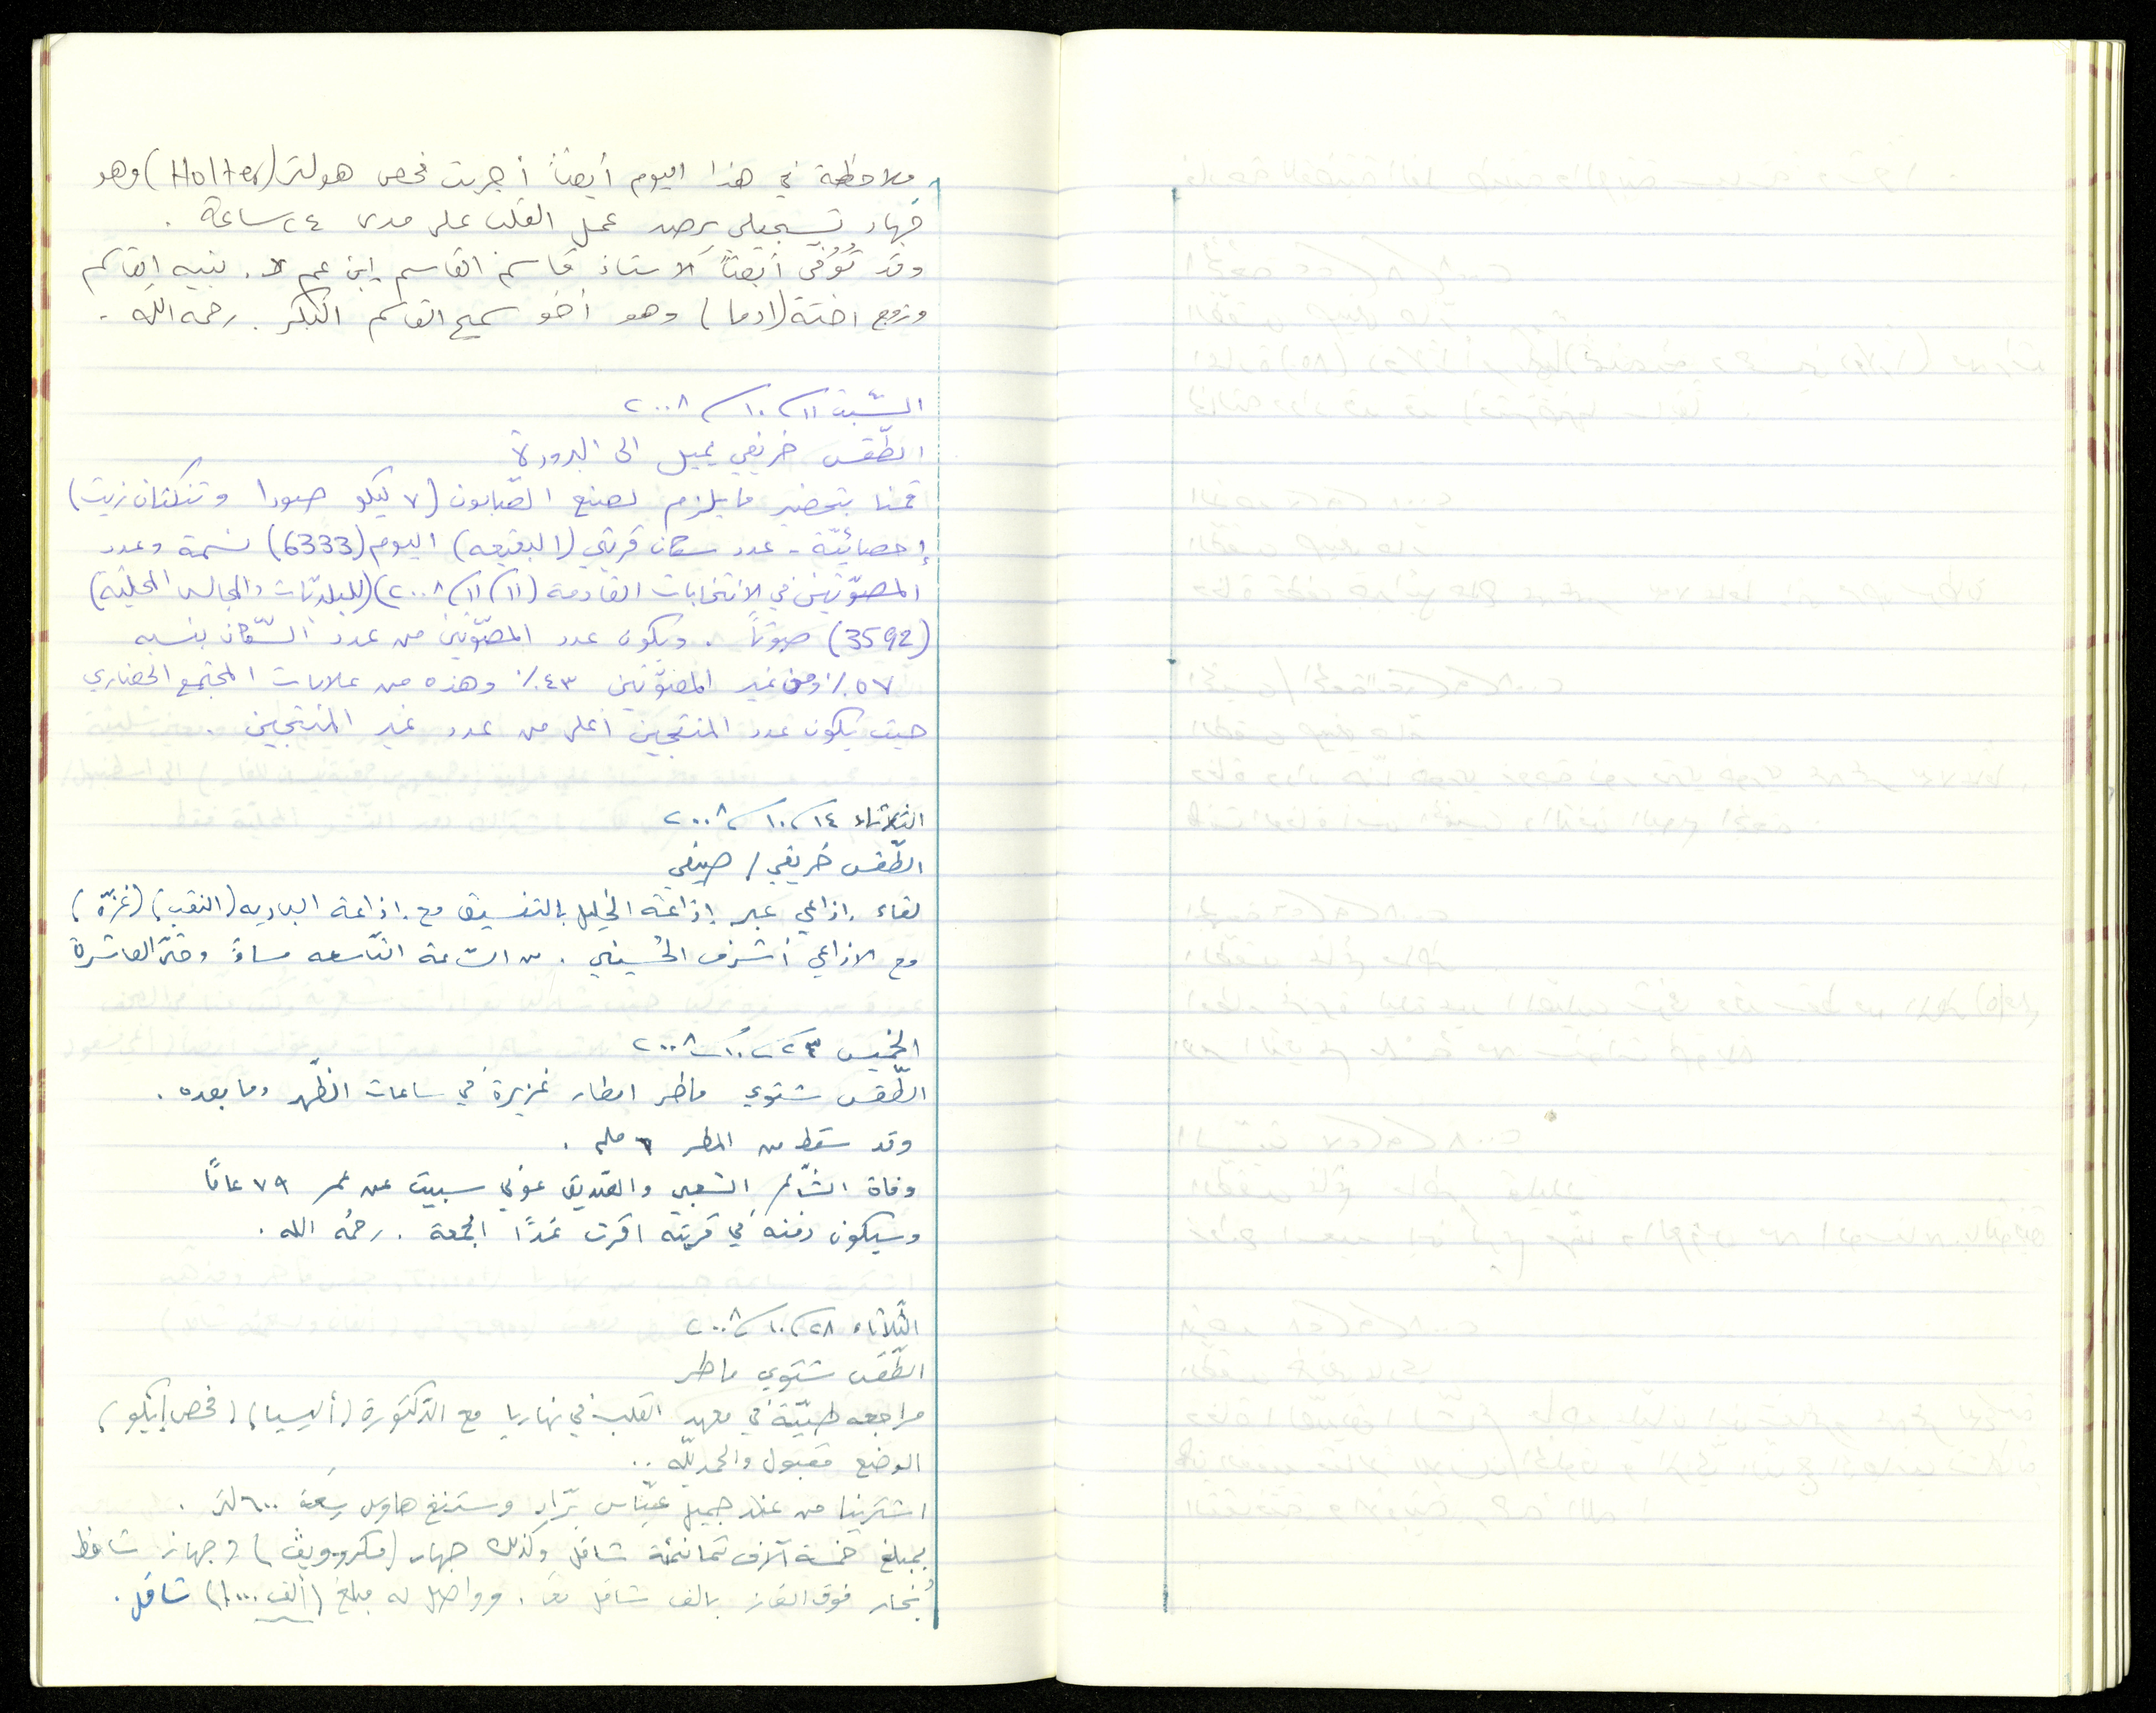 ملاحظة في هذا اليوم أيضاً أجريت فحص هولتر (Holter) وهو
جهاز تسجيلي يرصد عمل القلب على مدى ٢٤ ساعة .
وقد تُوُفّي أيضاً الاستاذ قاسم القاسم إبن عم د. نبيه القاسم
وزوج اخته (ادما) وهو أخو سميح القاسم البكر . رحمه الله .
السّبت ١١/١٠/٢٠٠٨
الطّقس خريفي يميل الى البرودة
قمنا بتحضير ما يلزم لصنع الصّابون (٧ كيلو صودا وتنكتان زيت)
إحصائيّة - عدد سكان قريتي (البقيعه) اليوم (6333) نسمة وعدد
المصوّتين في الانتخابات القادمة (١١/١١/٢٠٠٨) (للبلديّات والمجالس المحليّة)
(3592) صوتاً . ويكون عدد المصوّتين من عدد السّكان بنسبه
٥٧٪ ومن غير المصوّتين ٤٣٪ وهذه من علامات المجتمع الحضاري
حيث يكون عدد المنتجين أعلى من عدد غير المنتجين .
الثلاثاء ١٤/١٠/٢٠٠٨
الطّقس خريفي / صيفي
لقاء إذاعي عبر إذاعة الخليل بالتنسيق مع إذاعة الباديه (النقب) (غزّة)
مع الاذاعي أشرف الحُسيني . من السّاعة التّاسعه مساءً وحتّى العاشرة
الخميس ٢٣/١٠/٢٠٠٨
الطّقس شتوي ماطر امطار غزيرة في ساعات الظّهر وما بعده .
وقد سقط من المطر ٦ ملم .
وفاة الشّاعر الشعبي والصّديق عوني سبيت عن عمر ٧٩ عامًا
وسيكون دفنه في قريته اقرت غدًا الجمعة . رحمُه الله .
الثّلاثاء ٢٨/١٠/٢٠٠٨
الطّقس شتوي ماطر
مراجعه طبيّة في معهد القلب في نهاريا مع الدّكتورة (أليسيا) (فحص إيكو)
الوضع مقبول والحمد لله ..
اشترينا من عند جميل عبّاس برّاد وستنغ هاوس سِعَة ٦٠٠ لتر .
بمبلغ خمسة آلاف ثمانمئة شاقل وكذلك جهاز (مكروويڤ) وجهاز شافط
بُخار فوق الغاز بالف شاقل . وواصل له مبلغ (ألف ١٠٠٠) شاقل .